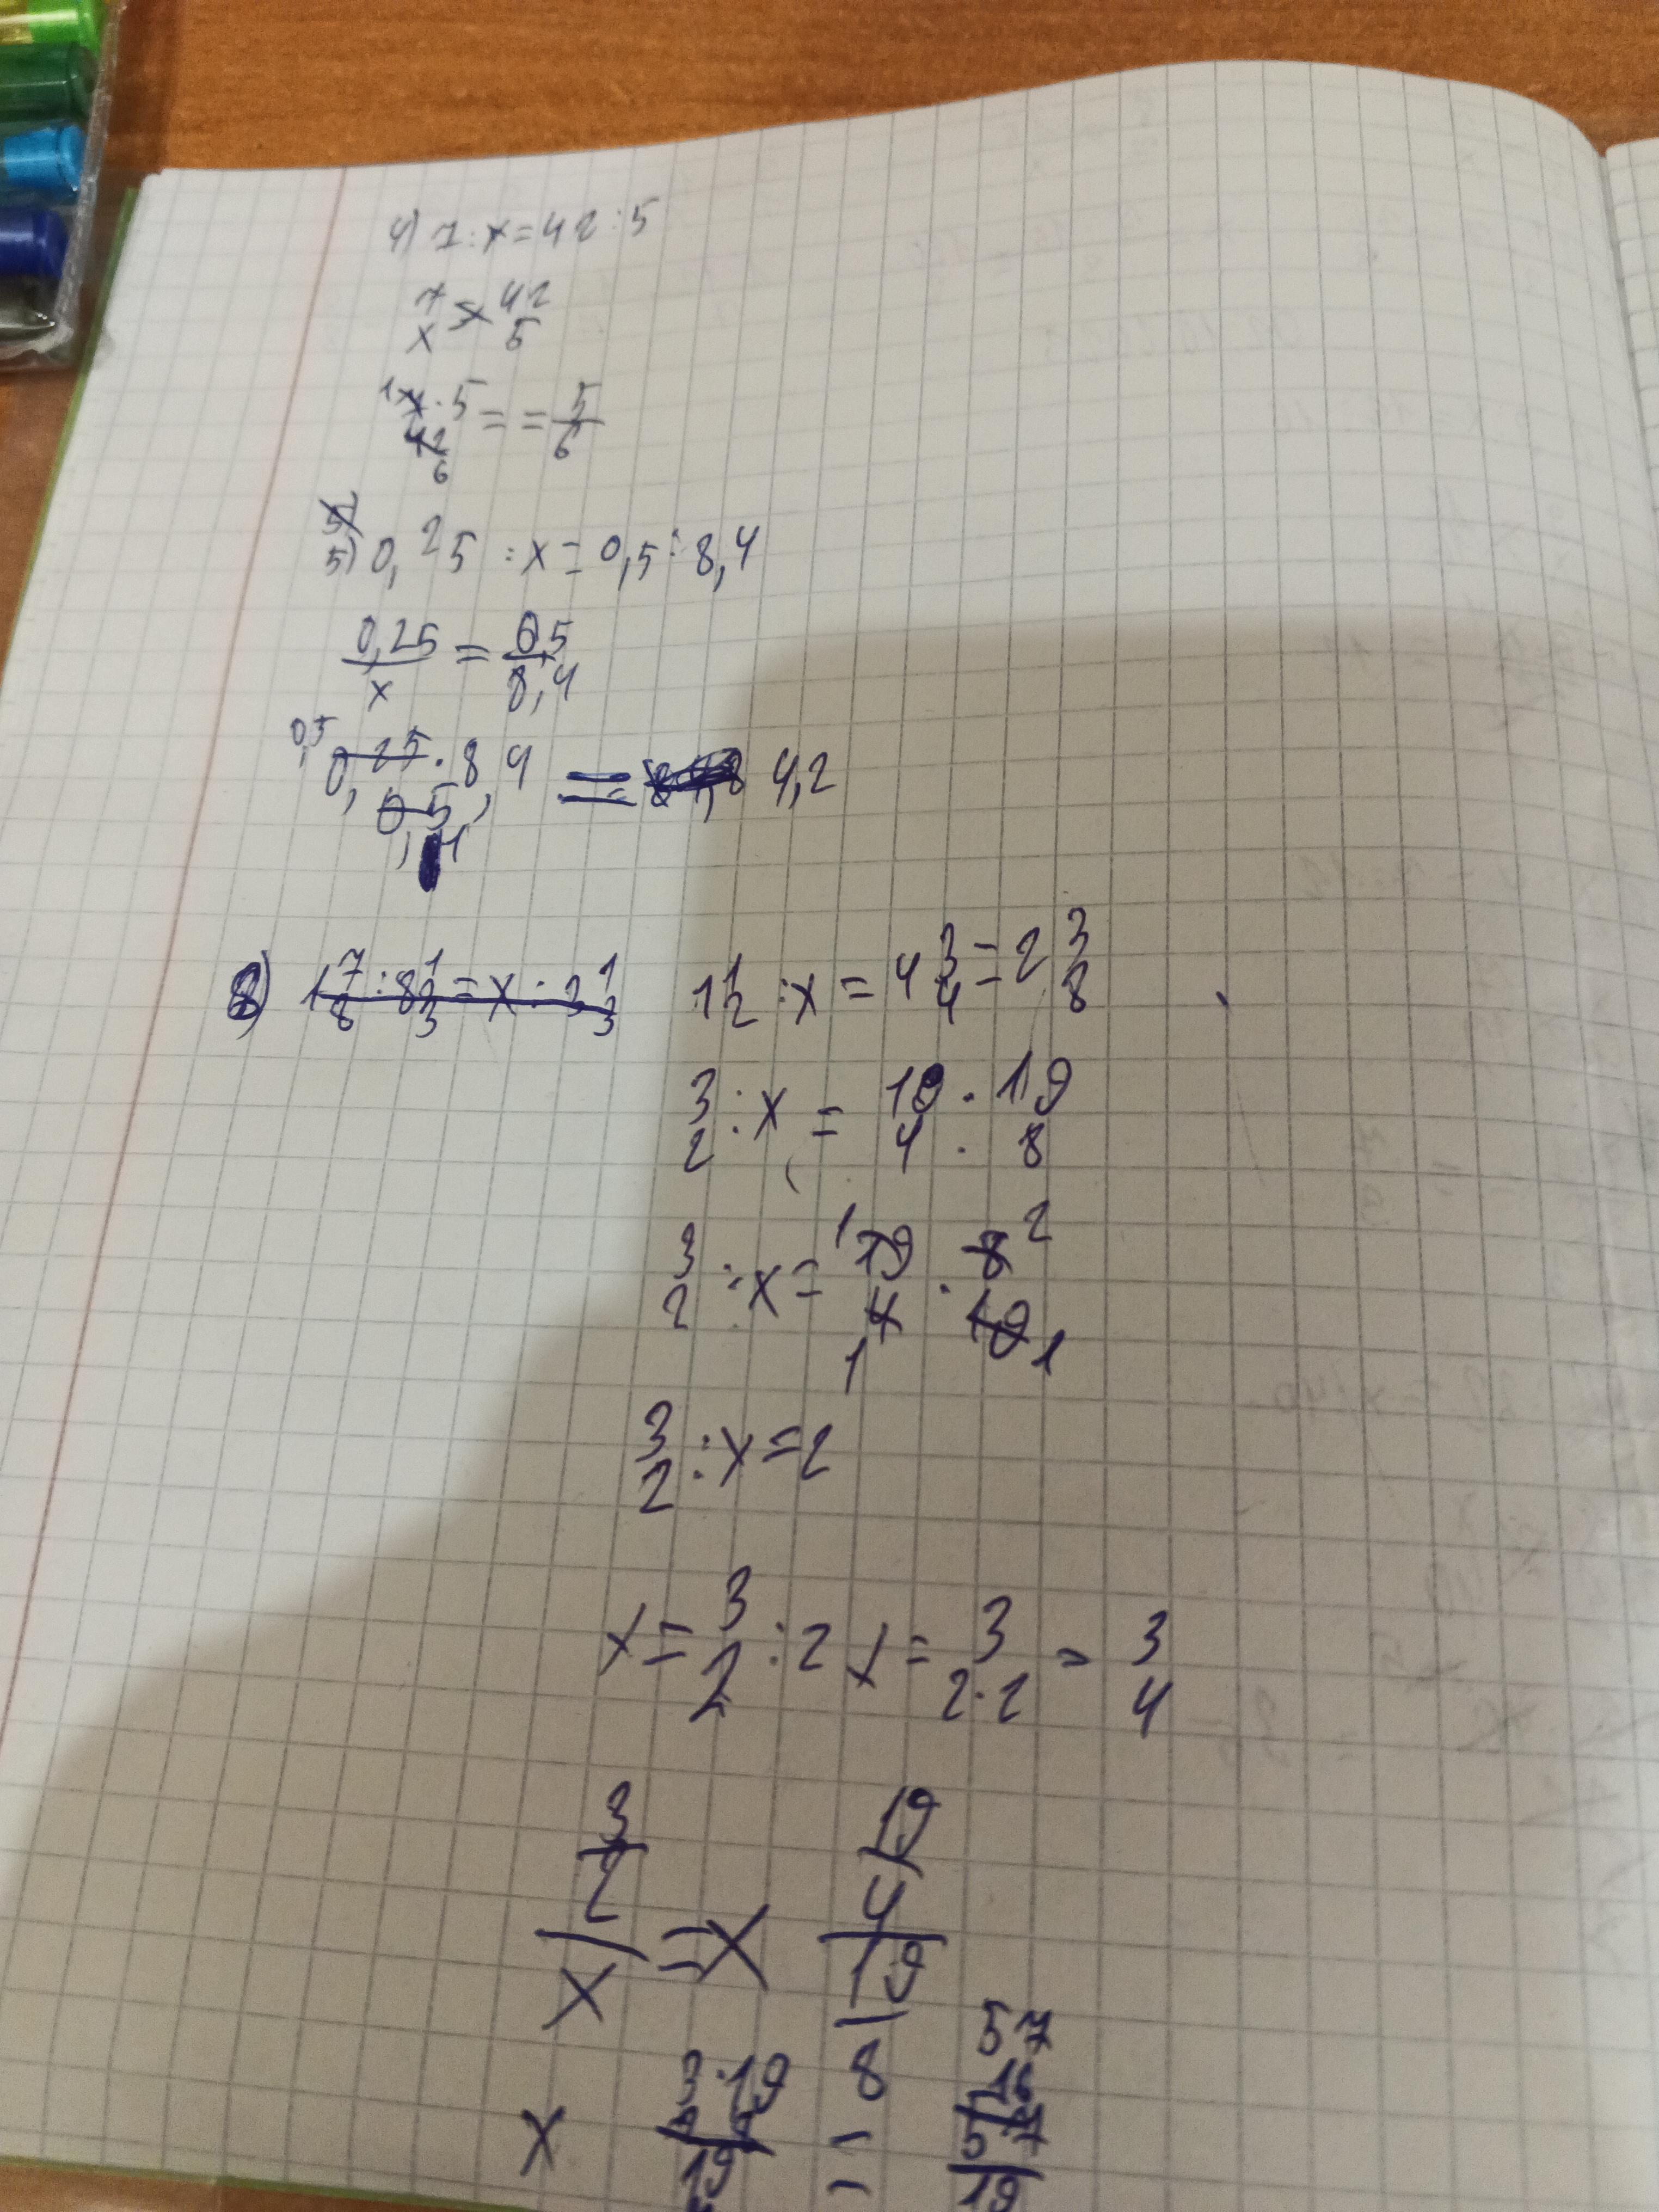 4) 7 : x = 42 : 5
7/x = 42/5
1 7 · 5 / 42 6 = = 5/6
5) 0,25 : x = 0,5 : 8,4
0,25/x = 0,5/8,4
0,5 0,25 · 8,4 / 0,5 , 1 = 4,2
8) 1 7/8 : 8 1/3 = x : 3 1/3 1 1/2 : x = 4 3/4 = 2 3/8
3/2 : x = 19/4 · 19/8
3/2 : x = 1 19/4 1 · 8 2/19 1
3/2 : x = 2
x = 3/2 : 2 x = 3/2·2 = 3/4
3/2 / x = x 19/4 / 19/8
x 3·19 / 19 = 57/16 / 57/19